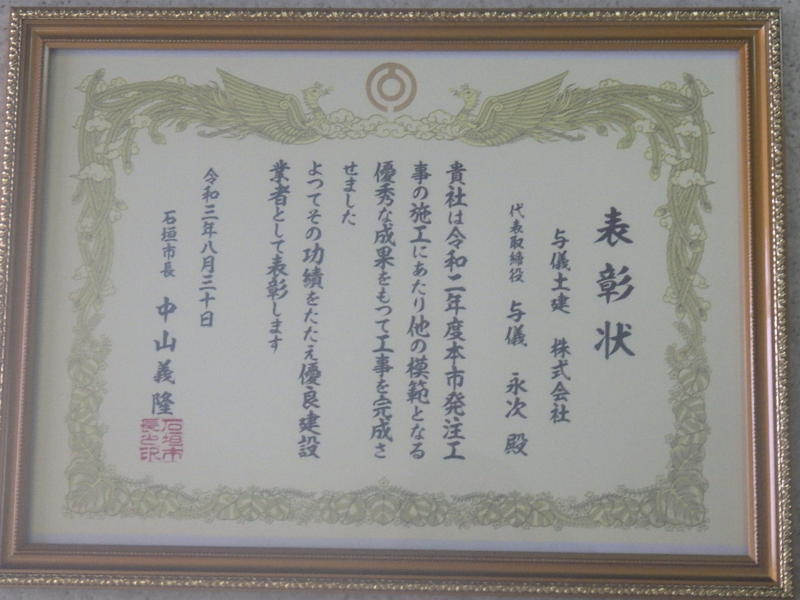 表彰状
与儀土建 株式会社
代表取締役 与儀 永次 殿
貴社は令和二年度本市発注工
事の施工にあたり他の模範となる
優秀な成果をもつて工事を完成さ
せました
よつてその功績をたたえ優良建設
業者として表彰します
令和三年八月三十日
石垣市長 中山義隆
石垣市
長之印